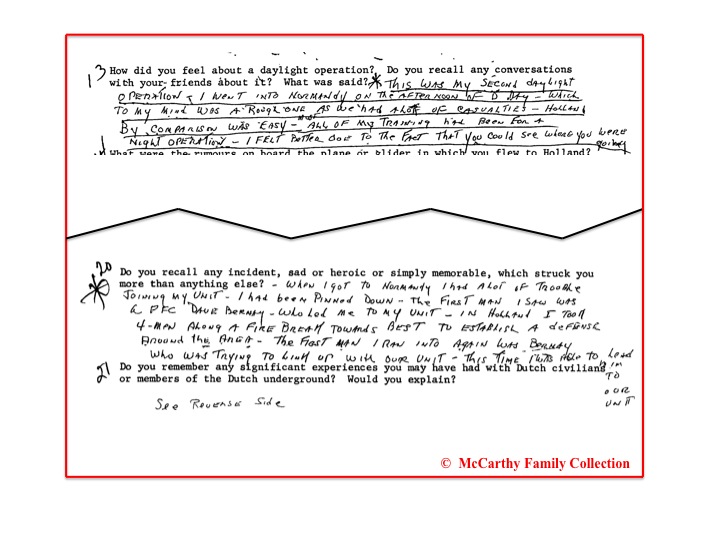 13 How did you feel about a daylight operation? Do you recall any conversations
with your friends about it? What was said? * THIS WAS MY SECOND daylight
OPERATION - I WENT INTO NORMANDY ON THE AFTERNOON OF D DAY - WHICH
TO MY MIND WAS A ROUGH ONE AS WE HAD A LOT OF CASUALTIES - HOLLAND
BY COMPARISON WAS EASY - MOST ALL OF MY TRAINING HAD BEEN FOR A
NIGHT OPERATION - I FELT BETTER DUE TO THE FACT THAT you COULD SEE WHERE YOU WERE
going
What were the rumours on board the plane or glider in which you flew to Holland?
20 Do you recall any incident, sad or heroic or simply memorable, which struck you
* more than anything else? - WHEN I GOT TO NORMANDY I HAD A LOT OF TROUBLE
JOINING MY UNIT - I had been PINNED DOWN - THE FIRST MAN I SAW WAS
A PFC DAVE BERNAY - WHO LED ME TO MY UNIT - IN HOLLAND I TOOK
4-MEN ALONG A FIRE BREAK TOWARDS BEST TO ESTABLISH A DEFENSE
AROUND the AREA - THE FIRST MAN I RAN INTO AGAIN WAS BERNAY
WHO WAS TRYING TO LINK UP WITH OUR UNIT - THIS TIME I WAS ABLE TO Lead
21 Do you remember any significant experiences you may have had with Dutch civilians
HIM
TO
or members of the Dutch underground? Would you explain?
OUR
UNIT
See REVERSE Side
© McCarthy Family Collection